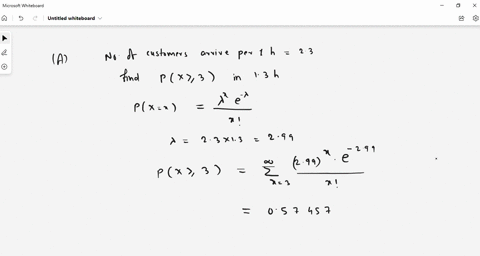 Microsoft Whiteboard
Untitled whiteboard
(A) No. of customers arrive per 1 h = 2.3
find P(x ≥ 3) in 1.3 h
P(x=x) = λ^x e^-λ / x!
λ = 2.3 x 1.3 = 2.99
P(x ≥ 3) = ∞ Σ x=3 (2.99)^x . e^-2.99 / x!
= 0.57457